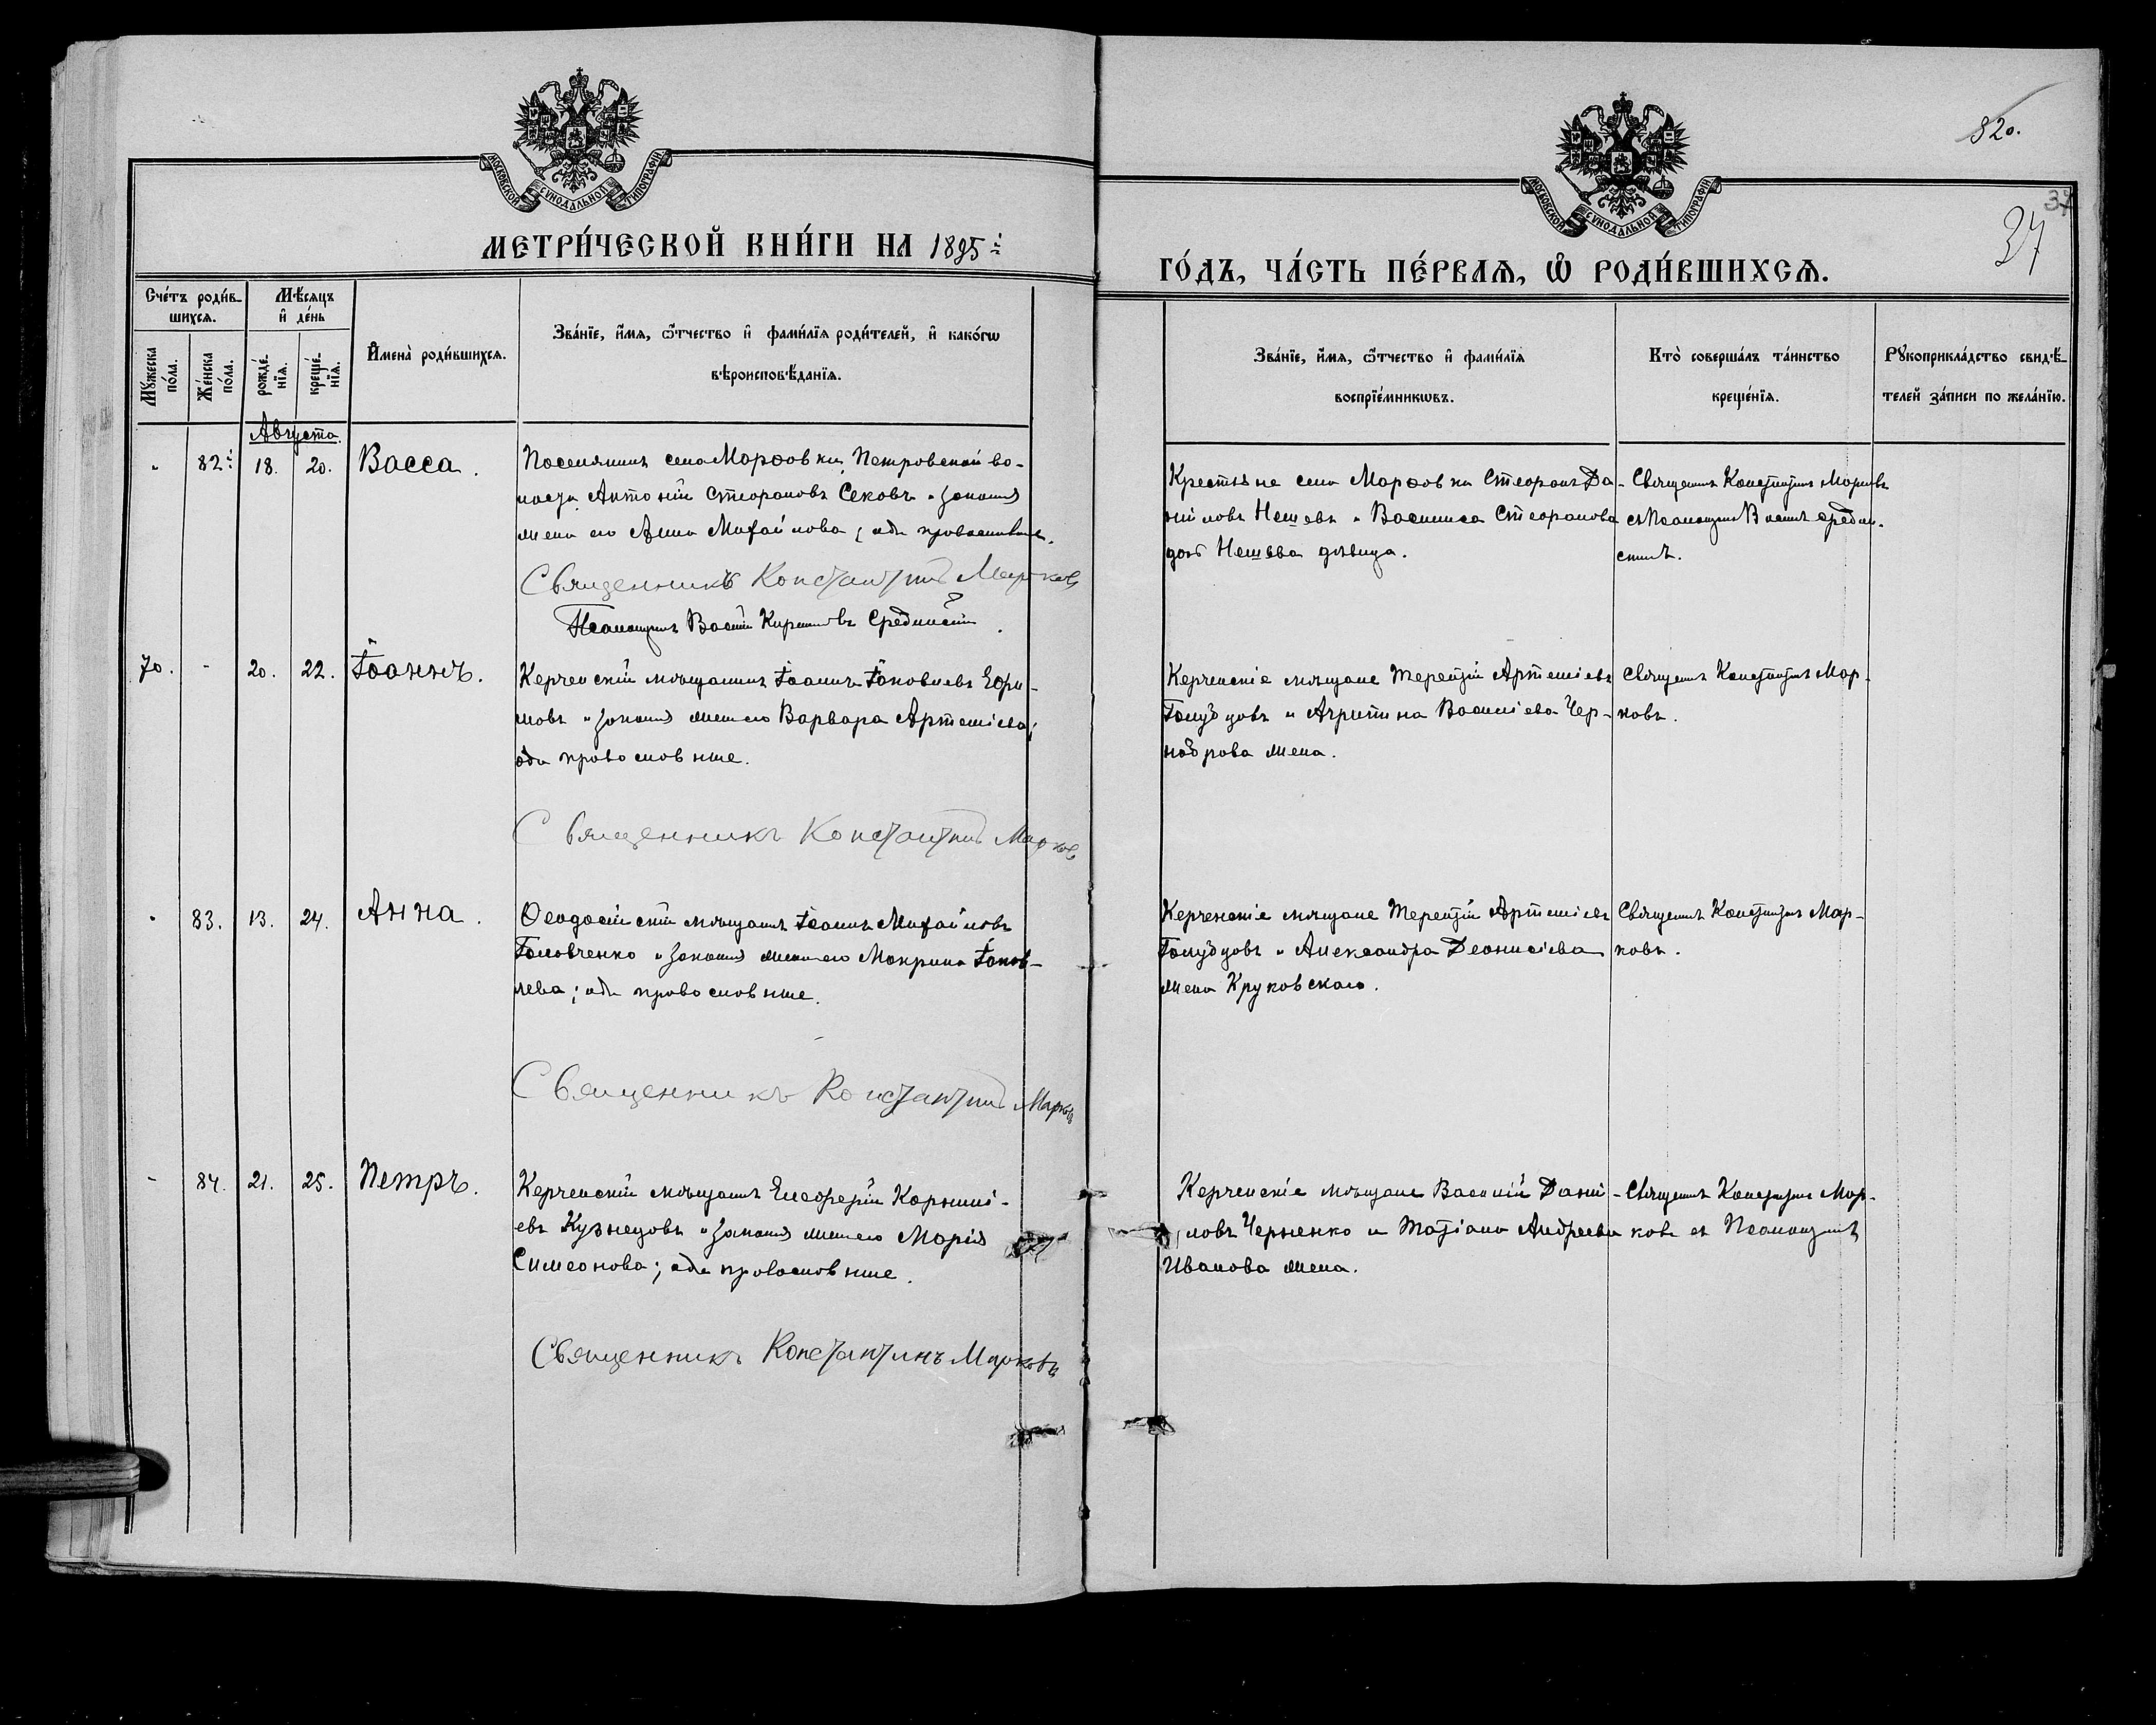 820.
37
37
МОСКОВСКОЙ СѴНОДАЛЬНОЙ ТИПОГРАФІИ
МОСКОВСКОЙ СѴНОДАЛЬНОЙ ТИПОГРАФІИ
МЕТРИ́ЧЕСКОЙ КНИ́ГИ НА 1895й
ГО́ДЪ, ЧА́СТЬ ПЕ́РВАѦ, Ѡ РОДИ́ВШИХСѦ.
Сче́тъ роди́в-
шихсѧ.
Мѣ́сяцъ
и҆ де́нь
Мꙋ́жеска по́ла.
Же́нска по́ла.
рожде́-
нїѧ.
креще́-
нїѧ.
И҆мена̀ роди́вшихсѧ.
Зва́нїе, и҆́мѧ, ѻ҆́тчество и҆ фами́лїѧ роди́телей, и҆ како́гѡ
вѣроисповѣ́данїѧ.
Зва́нїе, и҆́мѧ, ѻ҆́тчество и҆ фами́лїѧ
воспрїе́мникѡвъ.
Кто̀ соверша́лъ та́инство
креще́нїѧ.
Рꙋкоприкла́дство свидѣ́-
телей за́писи по жела́нїю.
Августа.
82й 18. 20. Васса.
Поселянинъ села Марфовки, Петровской во-
лости, Антоній Стефановъ Сековъ и законная
жена его Анна Михайлова; оба православные.
Священникъ Константинъ Марковъ
Псаломщикъ Василій Средницкій.
Крестьяне села Марфовки Стефанъ Да-
ніиловъ Нешевъ и Василиса Стефанова
Нешева дѣвица.
Священникъ Константинъ Марковъ
съ Псаломщикомъ
70. - 20. 22. Іоаннъ.
Керченскій мѣщанинъ Іоаннъ Іаковлевъ Ефи-
мовъ и законная жена его Варвара Артеміева;
оба православные.
Священникъ Константинъ Марковъ
Керченскіе мѣщане Терентій Артеміевъ
Голубцовъ и Агрипина Василіева Чер-
жена.
Священникъ Константинъ Мар-
ковъ.
83. 13. 24. Анна.
Ѳеодосійскій мѣщанинъ Іоаннъ Михайловъ
Головченко и законная жена его Макрина Іаков-
лева; оба православные.
Священникъ Константинъ Марковъ
Керченскіе мѣщане Терентій Артеміевъ
Голубцовъ и Александра Деонисіева
жена Круковскаго.
Священникъ Константинъ Мар-
ковъ.
- 84. 21. 25. Петръ.
Керченскій мѣщанинъ Елевферій Корнилі-
евъ Кузнецовъ и законная жена его Марія
Симеонова; оба православные.
Священникъ Константинъ Марковъ
Керченскіе мѣщане Василій Дани-
ловъ Черненко и Татіана Андреева
Иванова жена.
Священникъ Константинъ Мар-
ковъ съ Псаломщикомъ